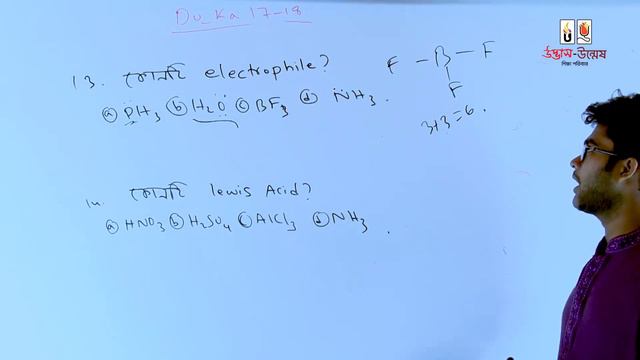 Du_Ka 17-18
উদ্ভাস-উন্মেষ
শিক্ষা পরিবার
13. কোনটি electrophile?
ⓐ PH3 ⓑ H2O ⓒ BF3 ⓓ NH3.
F - B - F
F
3+3=6.
14. কোনটি lewis Acid?
ⓐ HNO3 ⓑ H2SO4 ⓒ AlCl3 ⓓ NH3